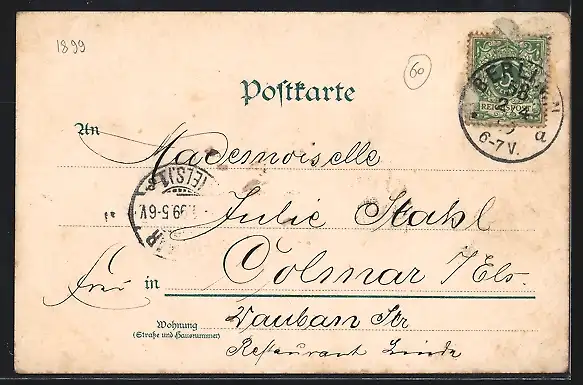 1899
60
Postkarte
REICHSPOST
BERLIN
28
4
6-7V.
a
An Mademoiselle
(ELS)1
99.5-6V
Julie Stahl
Frei in Colmar / Els.
Wohnung
(Straße und Hausnummer)
Vauban Str
Restaurant Linde